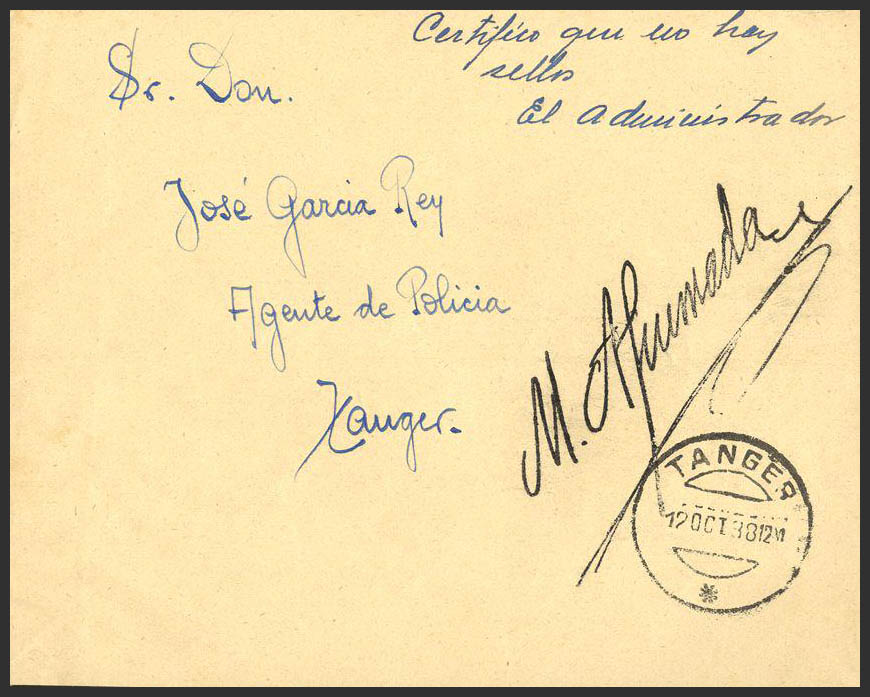 Certifico que no hay
sellos
El Administrador
Sr. Don.
José Garcia Rey
Agente de Policia
Tanger.
M. Ahumada
TANGER
12 OCT 38 12M